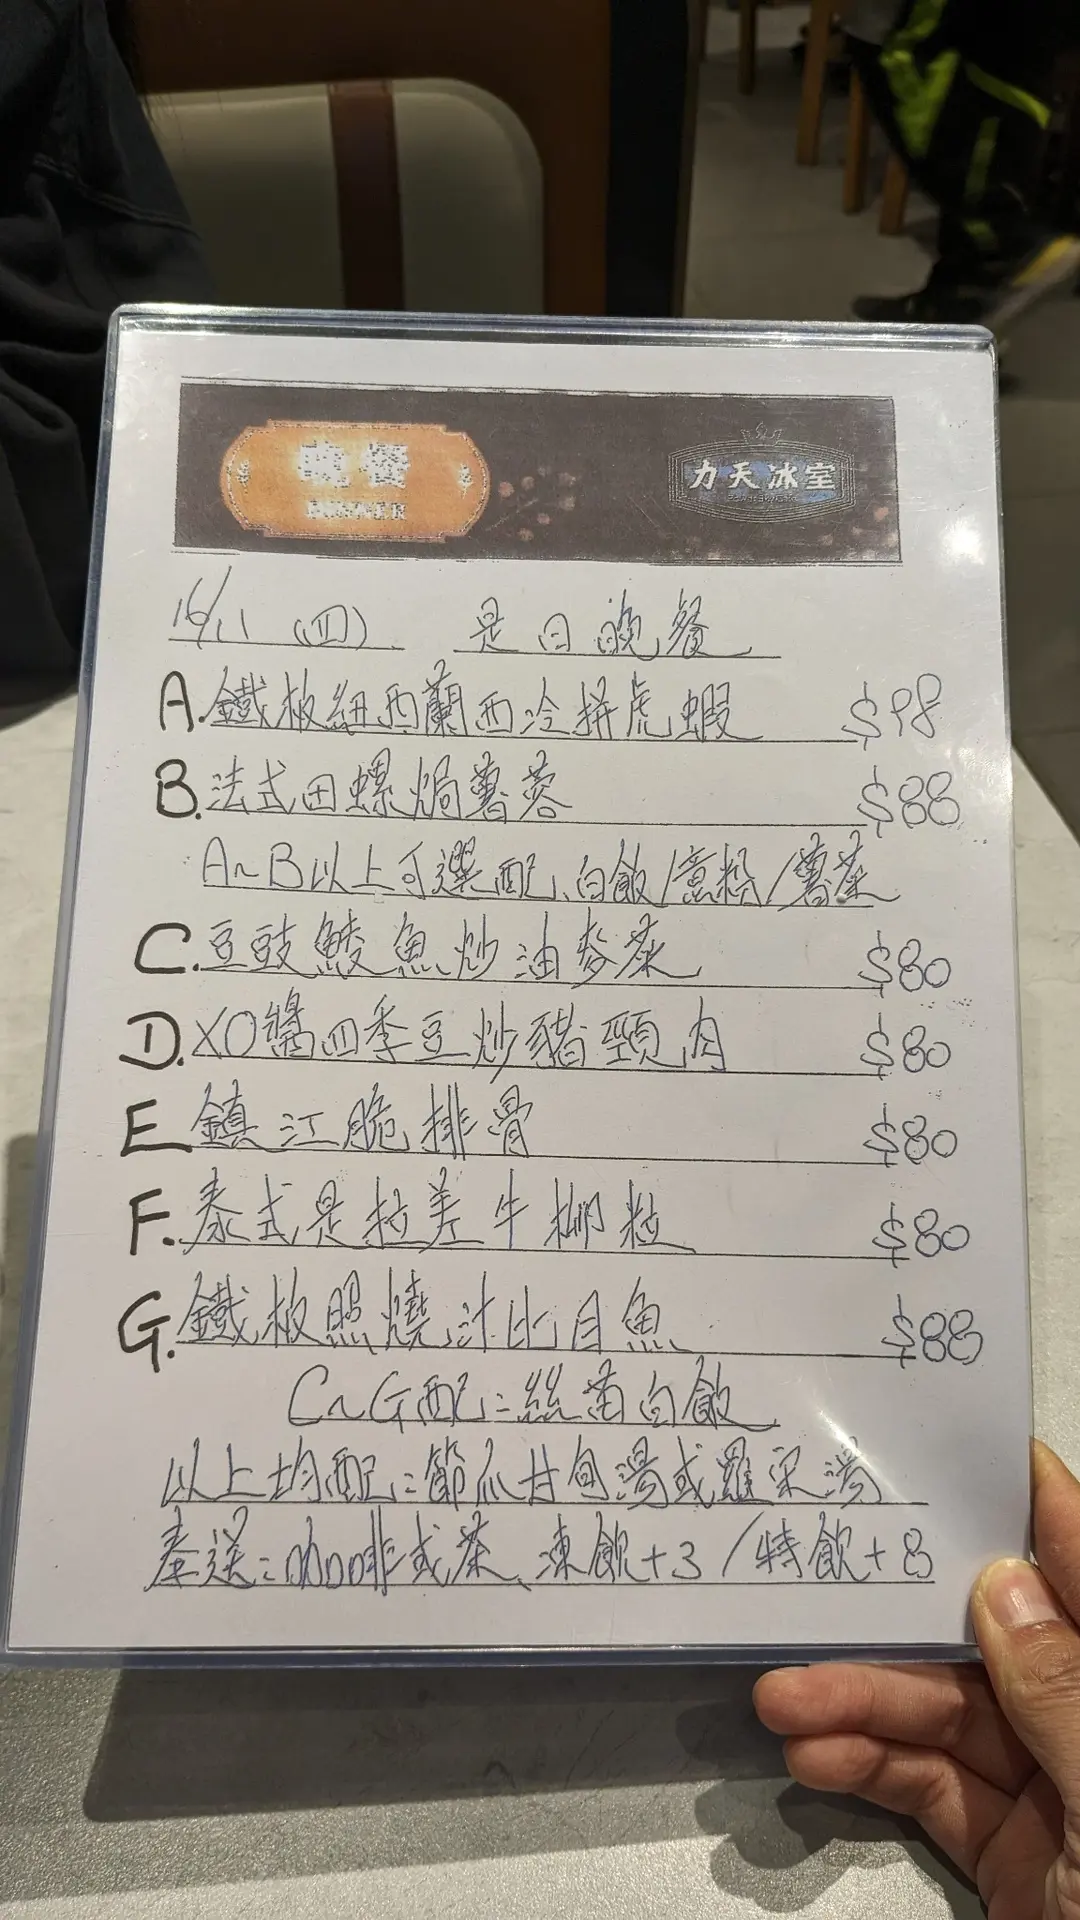 晚餐
DINNER
力天冰室
16/11 (四) 是日晚餐
A.鐵板紐西蘭西冷拼虎蝦 $98
B.法式田螺焗薯蓉 $88
A~B以上可選配、白飯/意粉/薯菜
C.豆豉鯪魚炒油麥菜 $80
D.XO醬四季豆炒豬頸肉 $80
E鎮江脆排骨 $80
F.泰式是拉差牛柳粒 $80
G.鐵板照燒汁比目魚 $88
C~G配:絲苗白飯
以上均配:節瓜甘筍湯或羅宋湯
奉送:咖啡或茶、凍飲+3/特飲+8